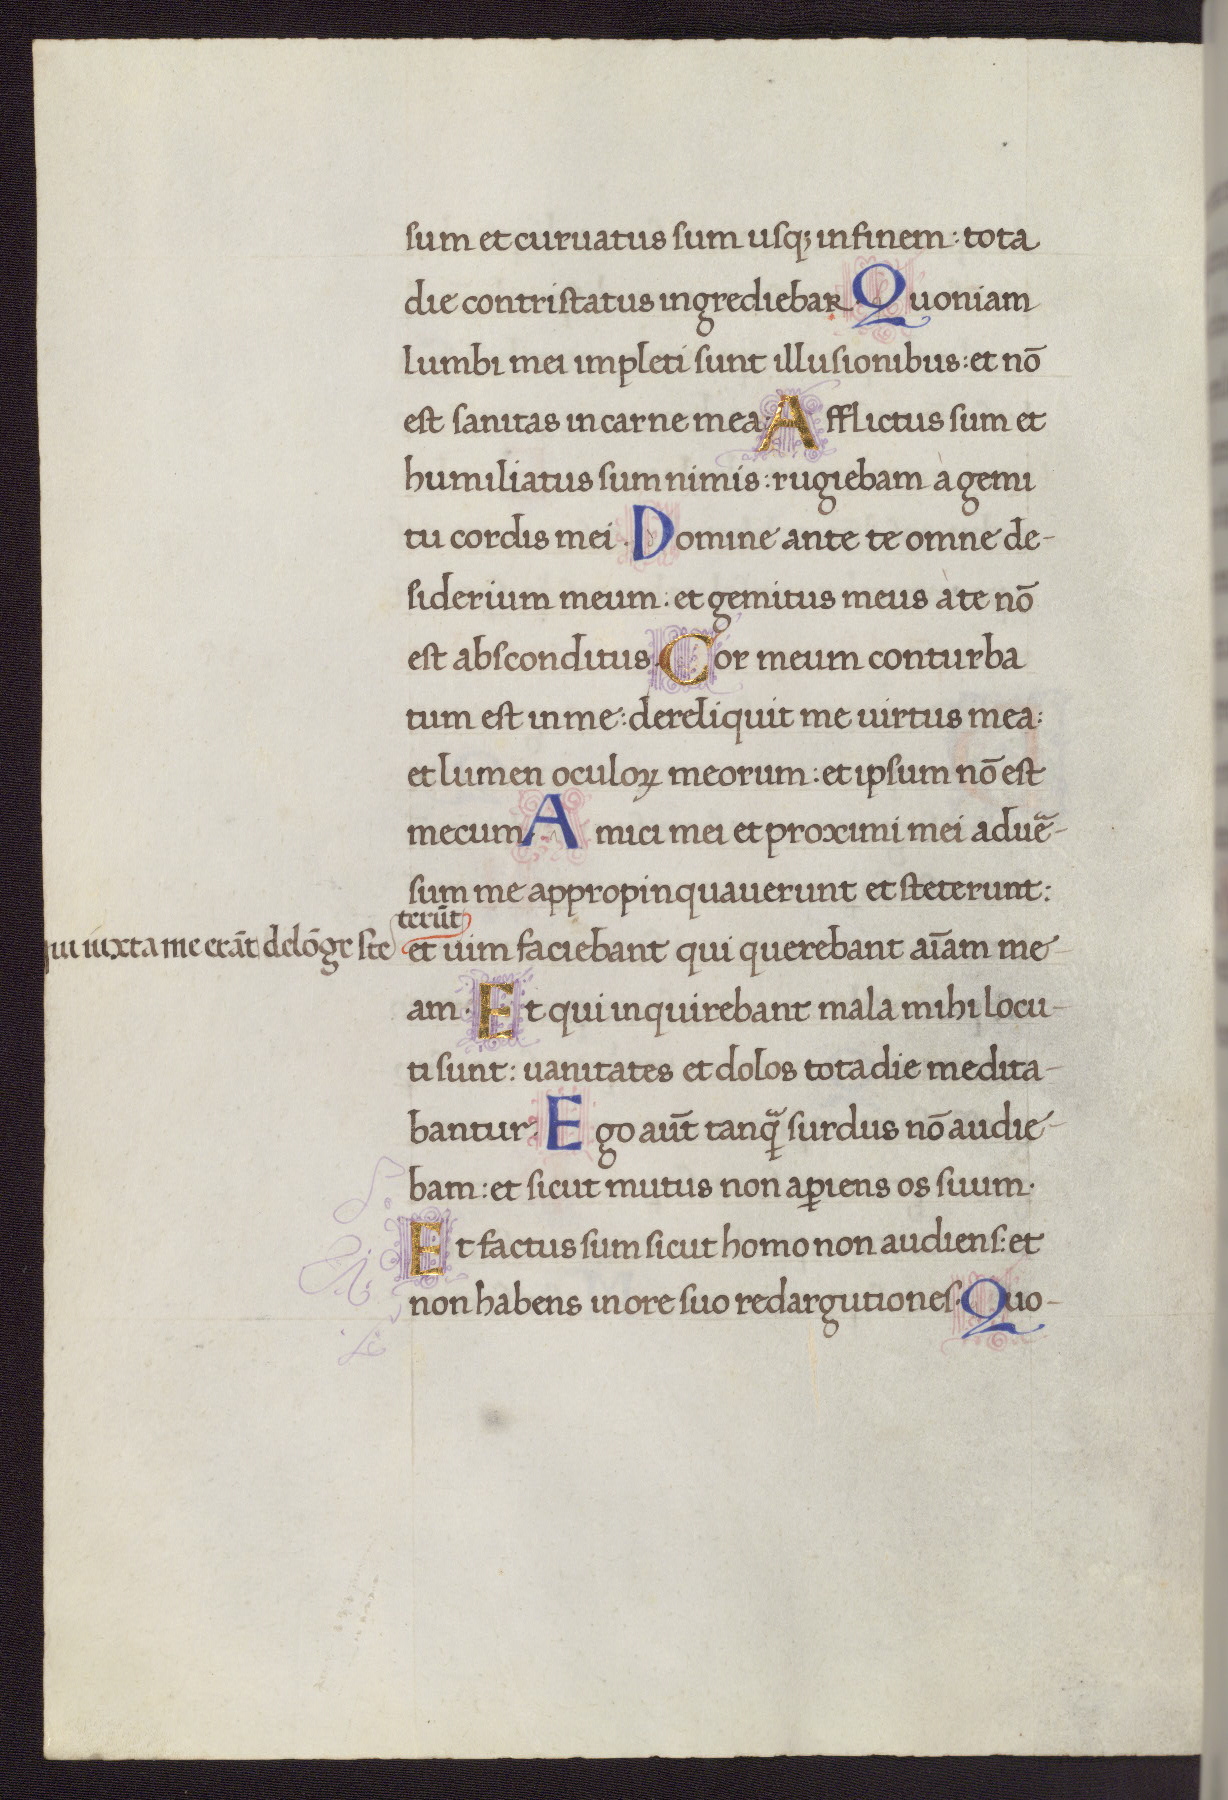 sum et curuatus sum usqꝫ in finem : tota
die contristatus ingrediebar. Quoniam
lumbi mei impleti sunt illusionibus : et nō
est sanitas in carne mea. Afflictus sum et
humiliatus sum nimis : rugiebam à gemi
tu cordis mei . Domine ante te omne de-
siderium meum : et gemitus meus à te nō
est absconditus. Cor meum conturba
tum est in me : dereliquit me uirtus mea :
et lumen oculoꝝ meorum : et ipsum nō est
mecum. Amici mei et proximi mei aduē-
sum me appropinquauerunt et steterunt :
qui iuxta me erāt de lōge ste
terūt
et uim faciebant qui querebant aīam me-
am . Et qui inquirebant mala mihi locu-
ti sunt : uanitates et dolos tota die medita-
bantur. Ego aūt tanq̄ surdus nō audie-
bam : et sicut mutus non aꝑiens os suum .
Et factus sum sicut homo non audiens : et
non habens in ore suo redargutiones. Quo-